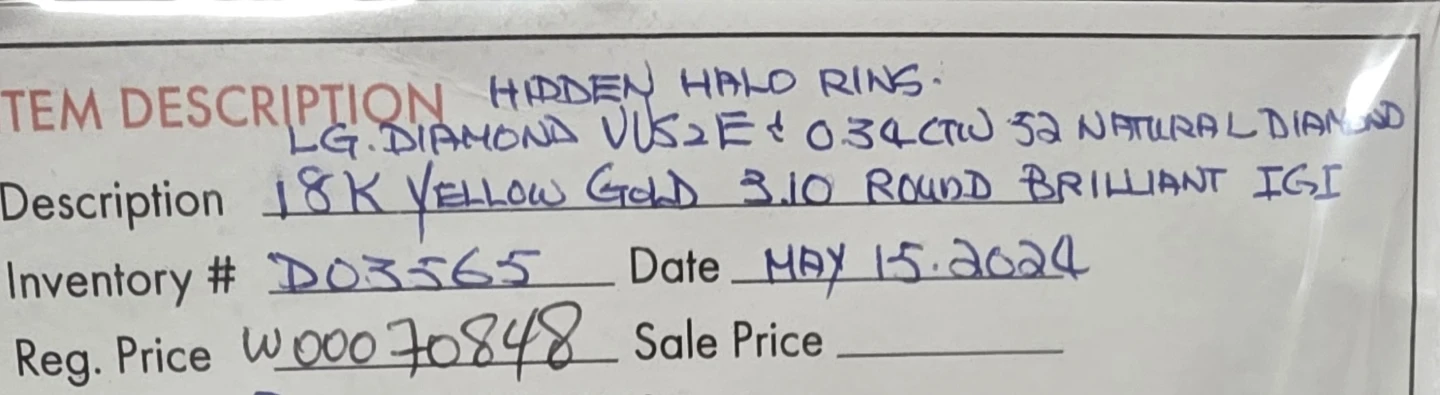 TEM DESCRIPTION HIDDEN HALO RING.
LG. DIAMOND VVS2 E & 0.34 CTW 52 NATURAL DIAMOND
Description 18K YELLOW GOLD 3.10 ROUND BRILLIANT IGI
Inventory # D03565 Date MAY 15.2024
Reg. Price W00070848 Sale Price